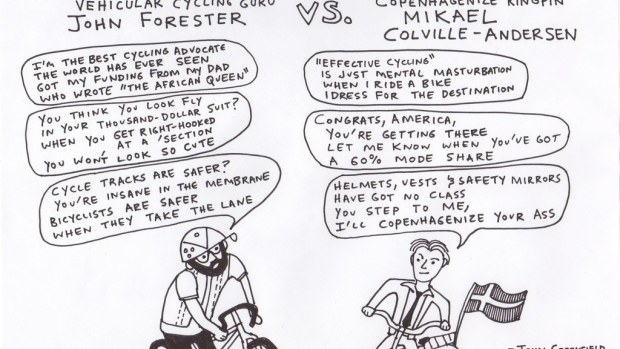 VEHICULAR CYCLING GURU
JOHN FORESTER
VS.
COPENHAGENIZE KINGPIN
MIKAEL
COLVILLE-ANDERSEN
I'M THE BEST CYCLING ADVOCATE
THE WORLD HAS EVER SEEN
GOT MY FUNDING FROM MY DAD
WHO WROTE "THE AFRICAN QUEEN"
"EFFECTIVE CYCLING"
IS JUST MENTAL MASTURBATION
WHEN I RIDE A BIKE
I DRESS FOR THE DESTINATION
YOU THINK YOU LOOK FLY
IN YOUR THOUSAND-DOLLAR SUIT?
WHEN YOU GET RIGHT-HOOKED
AT A 'SECTION
YOU WON'T LOOK SO CUTE
CONGRATS, AMERICA,
YOU'RE GETTING THERE
LET ME KNOW WHEN YOU'VE GOT
A 60% MODE SHARE
CYCLE TRACKS ARE SAFER?
YOU'RE INSANE IN THE MEMBRANE
BICYCLISTS ARE SAFER
WHEN THEY TAKE THE LANE
HELMETS, VESTS & SAFETY MIRRORS
HAVE GOT NO CLASS
YOU STEP TO ME,
I'LL COPENHAGENIZE YOUR ASS
- JOHN GREENFIELD